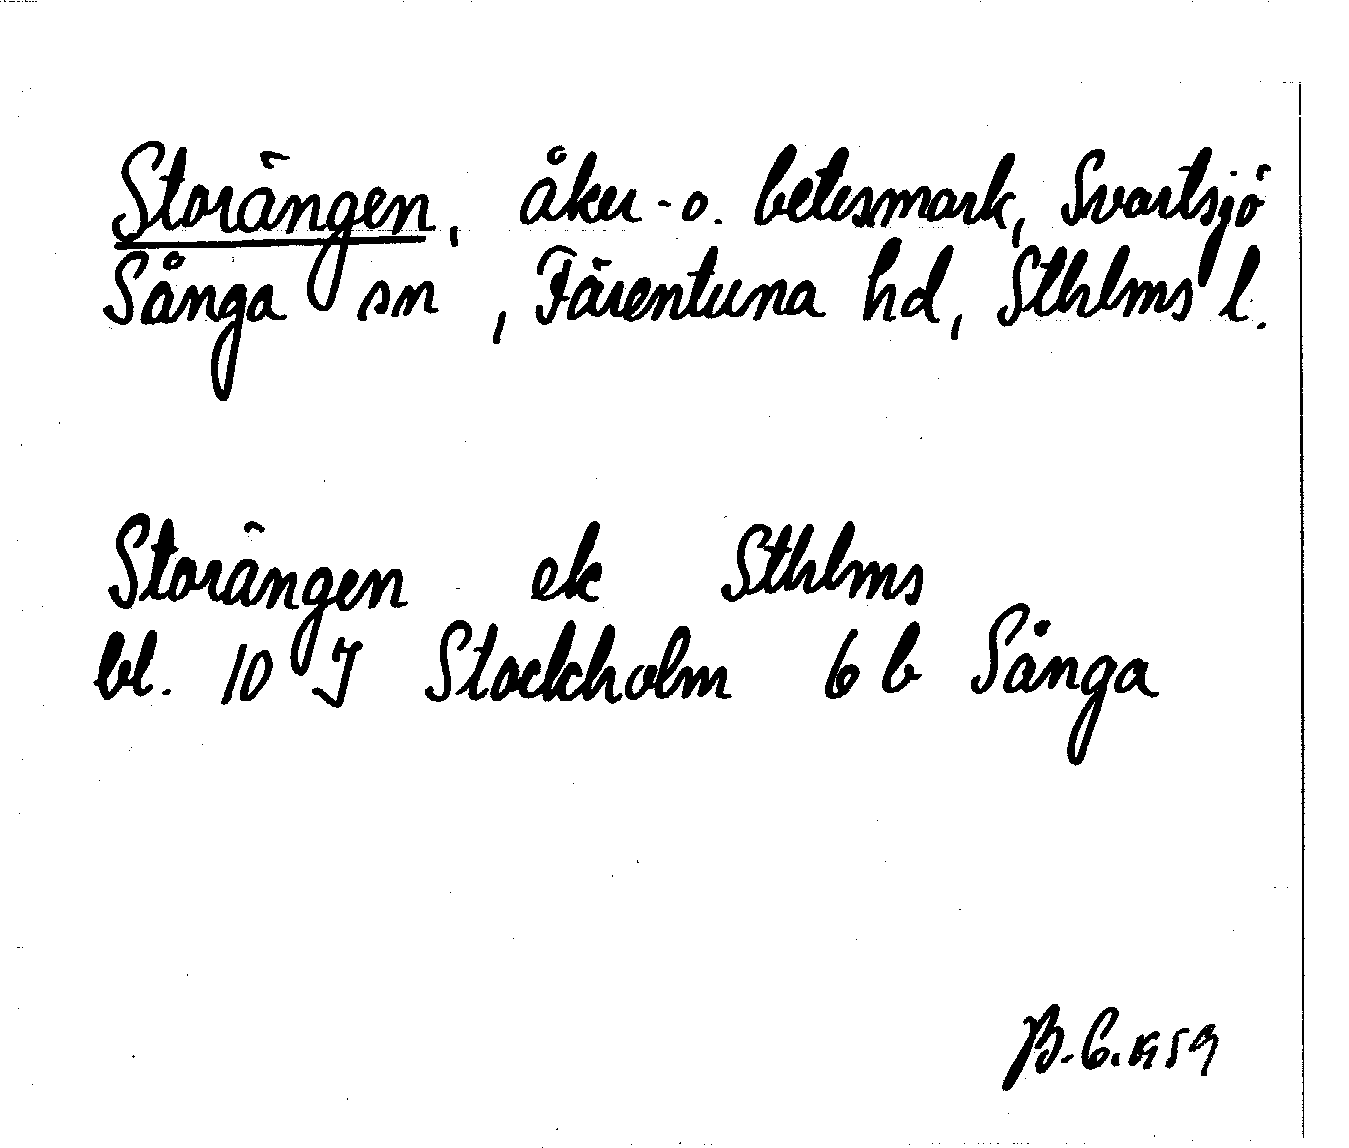 Storängen, åker- o. betesmark, Svartsjö
Sånga sn, Färentuna hd, Sthlms l.
Storängen ek Sthlms
bl. 10 I Stockholm 6 b Sånga
B.C. 1959